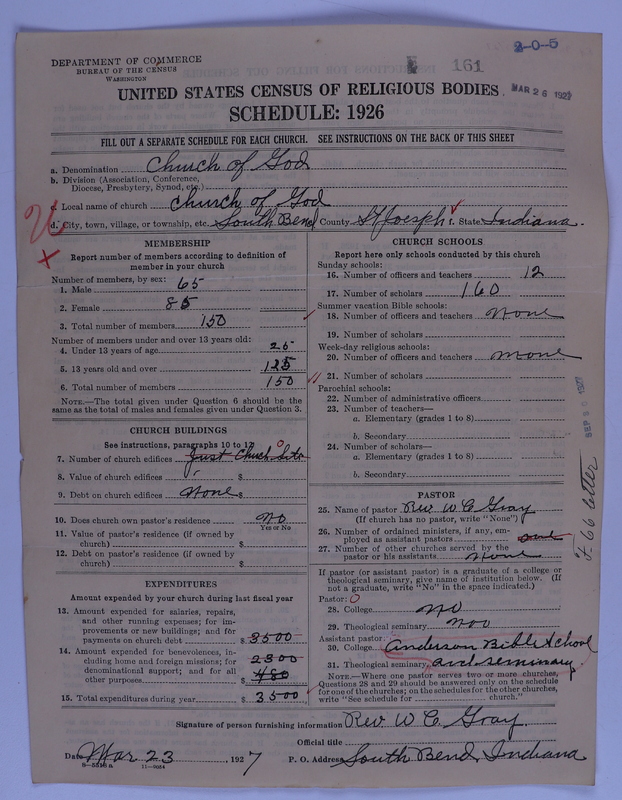 2-0-5
161
MAR 26 1927
DEPARTMENT OF COMMERCE
BUREAU OF THE CENSUS
WASHINGTON
UNITED STATES CENSUS OF RELIGIOUS BODIES
SCHEDULE: 1926
FILL OUT A SEPARATE SCHEDULE FOR EACH CHURCH. SEE INSTRUCTIONS ON THE BACK OF THIS SHEET
a. Denomination Church of God
b. Division (Association, Conference,
Diocese, Presbytery, Synod, etc.)
c. Local name of church Church of God
d. City, town, village, or township, etc. South Bend County St Joesph f. State Indiana.
MEMBERSHIP
Report number of members according to definition of
member in your church
Number of members, by sex:
1. Male 65
2. Female 85
3. Total number of members 150
Number of members under and over 13 years old:
4. Under 13 years of age 25
5. 13 years old and over 125
6. Total number of members 150
NOTE.—The total given under Question 6 should be
the same as the total of males and females given under Question 3.
CHURCH BUILDINGS
See instructions, paragraphs 10 to 12
7. Number of church edifices Just Chuch Site 0
8. Value of church edifices $
9. Debt on church edifices None $
10. Does church own pastor's residence No
Yes or No
11. Value of pastor's residence (if owned by
church) $
12. Debt on pastor's residence (if owned by
church) $
EXPENDITURES
Amount expended by your church during last fiscal year
13. Amount expended for salaries, repairs,
and other running expenses; for im-
provements or new buildings; and for
payments on church debt $ 3500
14. Amount expended for benevolences, in-
cluding home and foreign missions; for
denominational support; and for all
other purposes $ 2300
480
15. Total expenditures during year $ 3500
CHURCH SCHOOLS
Report here only schools conducted by this church
Sunday schools:
16. Number of officers and teachers 12
17. Number of scholars 160
Summer vacation Bible schools:
18. Number of officers and teachers None
19. Number of scholars
Week-day religious schools:
20. Number of officers and teachers None
21. Number of scholars
Parochial schools:
22. Number of administrative officers
23. Number of teachers—
a. Elementary (grades 1 to 8)
b. Secondary
24. Number of scholars—
a. Elementary (grades 1 to 8)
b. Secondary
PASTOR
25. Name of pastor Rev. W C Gray
(If church has no pastor, write "None")
26. Number of ordained ministers, if any, em-
ployed as assistant pastors
27. Number of other churches served by the
pastor or his assistants None
If pastor (or assistant pastor) is a graduate of a college or
theological seminary, give name of institution below. (If
not a graduate, write "No" in the space indicated.)
Pastor: 0
28. College No
29. Theological seminary Noo
Assistant pastor:
30. College Anderson Bible School
31. Theological seminary and seminary
NOTE.—Where one pastor serves two or more churches,
Questions 28 and 29 should be answered only on the schedule
for one of the churches; on the schedules for the other churches,
write "See schedule for church."
SEP 1927
F-66 letter
Signature of person furnishing information Rev. W C Gray.
Official title
Date Mar 23, 1927 P. O. Address South Bend, Indiana
8-5518a 11-9054